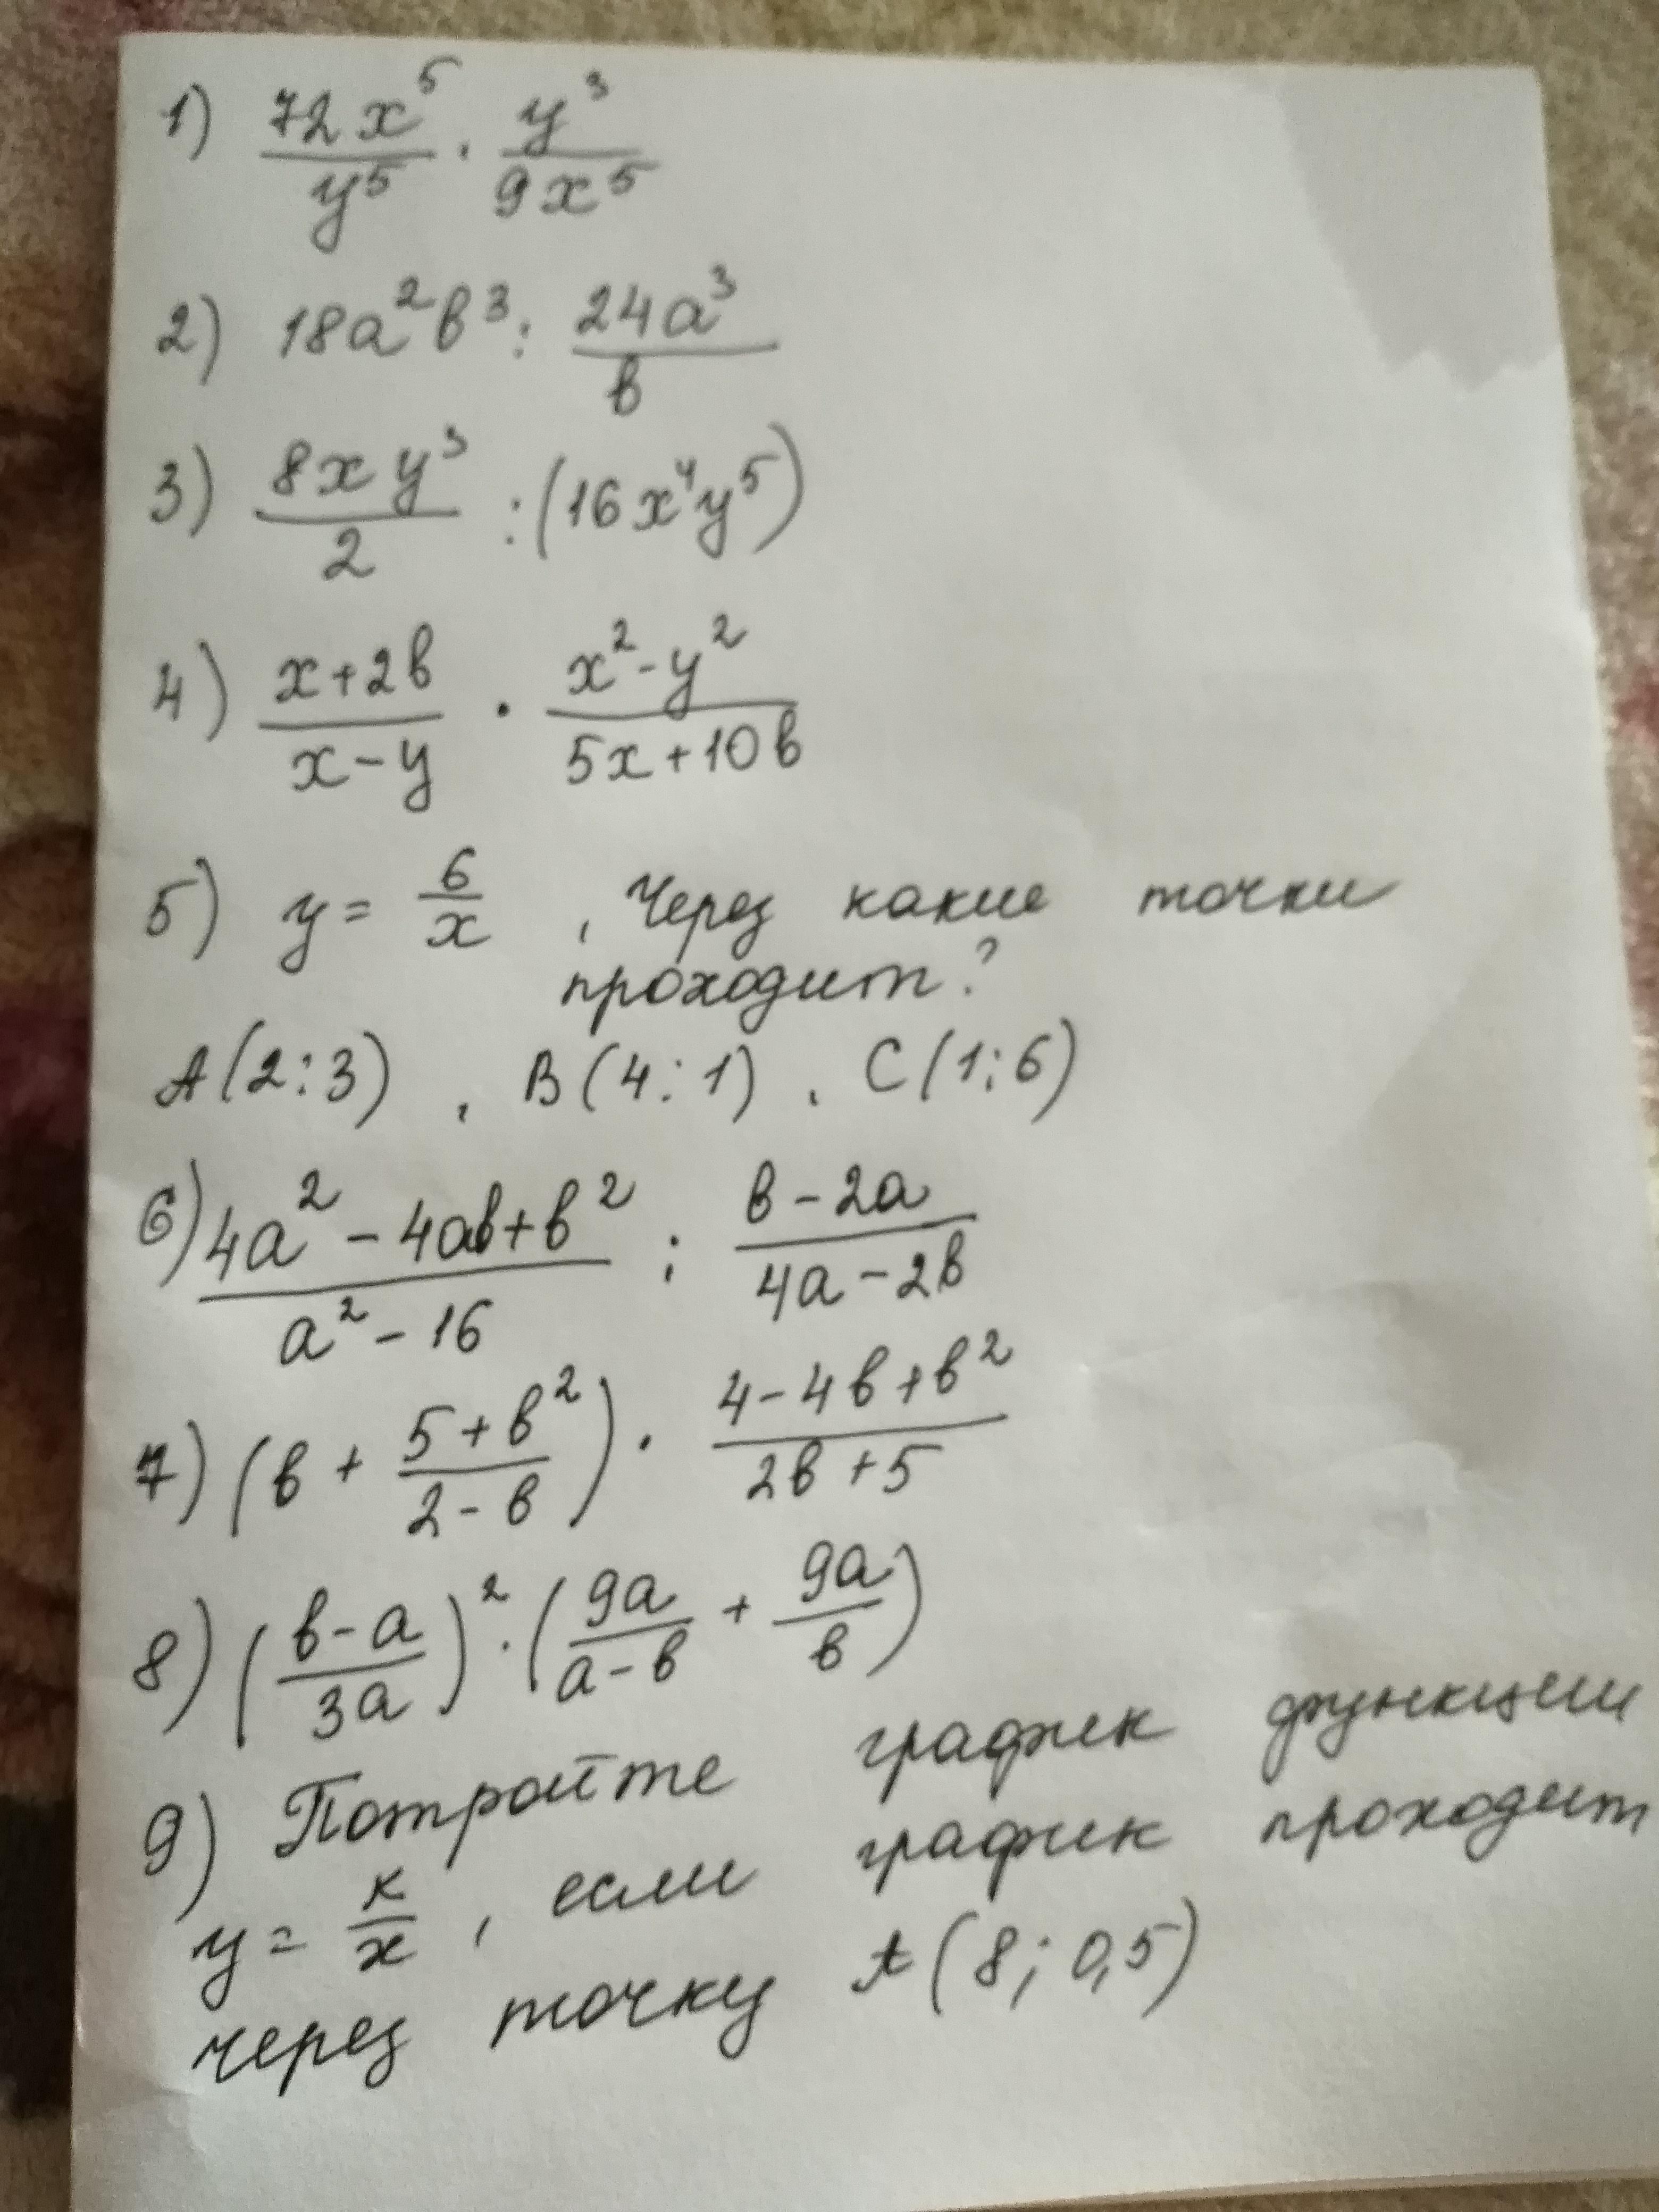 1) 72x⁵/y⁵ · y³/9x⁵
2) 18a²b³ : 24a³/b
3) 8xy³/2 : (16x⁴y⁵)
4) x+2b/x-y · x²-y²/5x+10b
5) y = 6/x , Через какие точки
проходит?
A(2:3) , B(4:1) , C(1;6)
6) 4a²-4ab+b²/a²-16 : b-2a/4a-2b
7) (b + 5+b²/2-b) · 4-4b+b²/2b+5
8) (b-a/3a)² · (9a/a-b + 9a/b)
9) Потройте график функции
y = к/x , если график проходит
через точку A(8; 0,5)